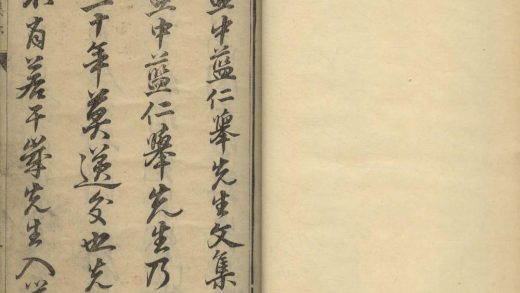 中藍仁舉先生文集
中藍仁舉先生乃
十年莫逆交也先
肖若干歲先生入